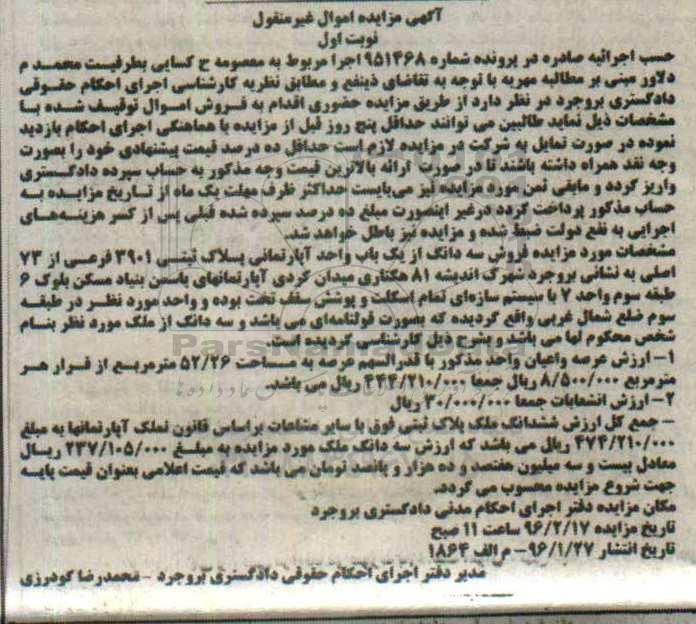 آگهی مزایده اموال غیرمنقول
نوبت اول
حسب اجرائیه صادره در پرونده شماره ۹۵۱۴۶۸ اجرا مربوط به معصومه ح کسایی بطرفیت محمد م
دلاور مبنی بر مطالبه مهریه با توجه به تقاضای ذینفع و مطابق نظریه کارشناسی اجرای احکام حقوقی
دادگستری بروجرد در نظر دارد از طریق مزایده حضوری اقدام به فروش اموال توقیف شده با
مشخصات ذیل نماید طالبین می توانند حداقل پنج روز قبل از مزایده با هماهنگی اجرای احکام بازدید
نموده در صورت تمایل به شرکت در مزایده لازم است حداقل ده درصد قیمت پیشنهادی خود را بصورت
وجه نقد همراه داشته باشند تا در صورت ارائه بالاترین قیمت وجه مذکور به حساب سپرده دادگستری
واریز گردد و مابقی ثمن مورد مزایده نیز می‌بایست حداکثر ظرف مهلت یک ماه از تاریخ مزایده به
حساب مذکور پرداخت گردد درغیر اینصورت مبلغ ده درصد سپرده شده قبلی پس از کسر هزینه‌های
اجرایی به نفع دولت ضبط شده و مزایده نیز باطل خواهد شد.
مشخصات مورد مزایده فروش سه دانگ از یک باب واحد آپارتمانی پلاک ثبتی ۳۹۰۱ فرعی از ۷۳
اصلی به نشانی بروجرد شهرک اندیشه ۸۱ هکتاری میدان کردی آپارتمانهای یاسمن بنیاد مسکن بلوک ۶
طبقه سوم واحد ۷ با سیستم سازه‌ای تمام اسکلت و پوشش سقف تخت بوده و واحد مورد نظر در طبقه
سوم ضلع شمال غربی واقع گردیده که بصورت قولنامه‌ای می باشد و سه دانگ از ملک مورد نظر بنام
شخص محکوم لها می باشد و بشرح ذیل کارشناسی گردیده است.
۱- ارزش عرصه واعیان واحد مذکور با قدرالسهم عرصه به مساحت ۵۲/۲۶ مترمربع از قرار هر
مترمربع ۸/۵۰۰/۰۰۰ ریال جمعا ۴۴۴/۲۱۰/۰۰۰ ریال می باشد.
۲- ارزش انشعابات جمعا ۳۰/۰۰۰/۰۰۰ ریال
- جمع کل ارزش ششدانگ ملک پلاک ثبتی فوق با سایر مشاعات براساس قانون تملک آپارتمانها به مبلغ
۴۷۴/۲۱۰/۰۰۰ ریال می باشد که ارزش سه دانگ ملک مورد مزایده به مبلغ ۲۳۷/۱۰۵/۰۰۰ ریال
معادل بیست و سه میلیون هفتصد و ده هزار و پانصد تومان می باشد که قیمت اعلامی بعنوان قیمت پایه
جهت شروع مزایده محسوب می گردد.
مکان مزایده دفتر اجرای احکام مدنی دادگستری بروجرد
تاریخ مزایده ۹۶/۲/۱۷ ساعت ۱۱ صبح
تاریخ انتشار ۹۶/۱/۲۷ - م الف ۱۸۶۴
مدیر دفتر اجرای احکام حقوقی دادگستری بروجرد - محمدرضا گودرزی